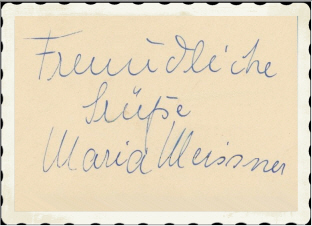 Freundliche
Grüße
Maria Meissner